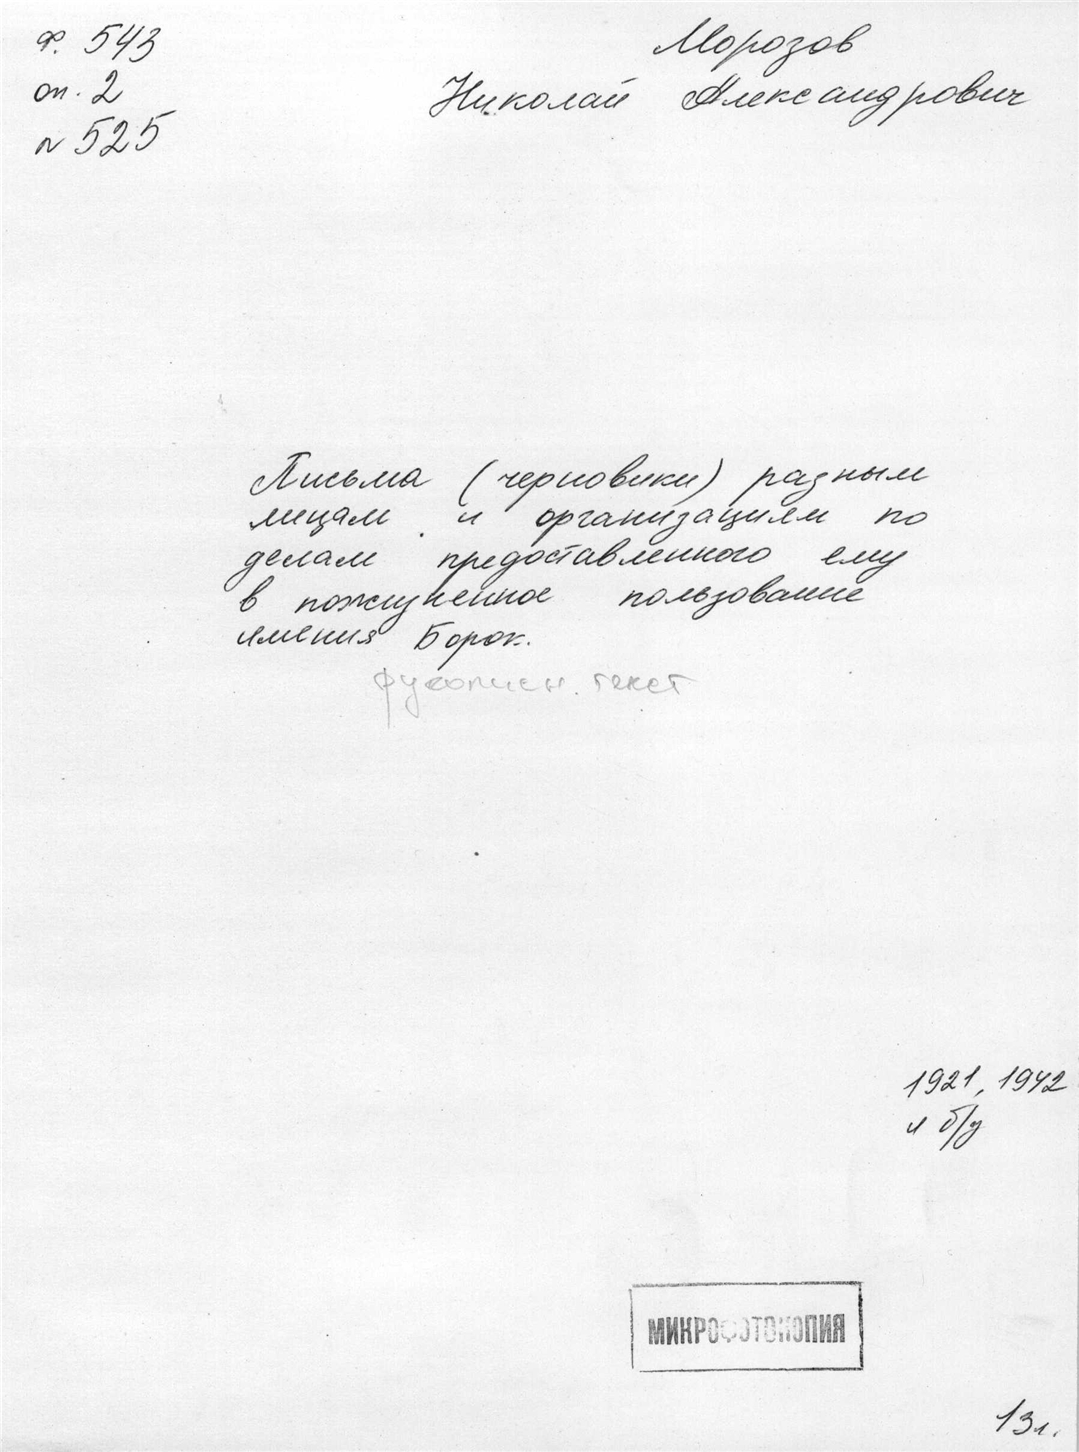 Ф. 543
оп. 2
N 525
Морозов
Николай Александрович
Письма (черновики) разным
лицам и организациям по
делам предоставленного ему
в пожизненное пользование
имения Борок.
рукописн. текст
1921, 1942
и б/д
МИКРОФОТОКОПИЯ
13 л.